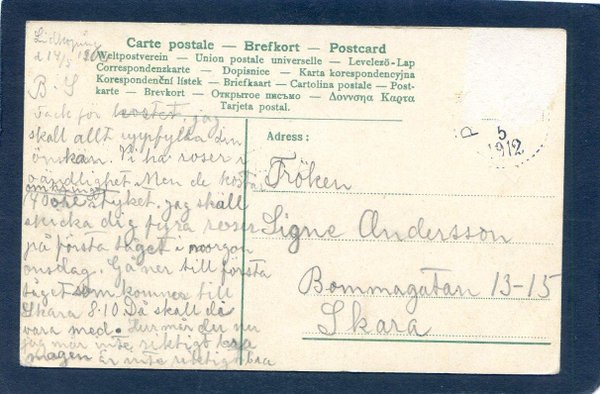 Carte postale — Brefkort — Postcard
Weltpostverein — Union postale universelle — Levelező-Lap
Correspondenzkarte — Dopisnice — Karta korespondencyjna
Korespondenční lístek — Briefkaart — Cartolina postale — Post-
karte — Brevkort — Открытое письмо — Δοννησα Καρτα
Tarjeta postal.
Lidköping
d 14/5
B. S
Tack för kortet, jag
skall allt uppfylla din
önskan. Vi ha roser i
oändlighet Men de kosta
40 öre stycket, jag skall
skicka dig fyra roser
på första tåget i morgon
onsdag. Gå ner till första
tåget som kommer till
Skara 8.10 Då skall de
vara med. Hur mår du nu
jag mår inte riktigt bra
magen är inte riktigt bra
5
1912
Adress:
Fröken
Signe Andersson
Bommagatan 13-15
Skara